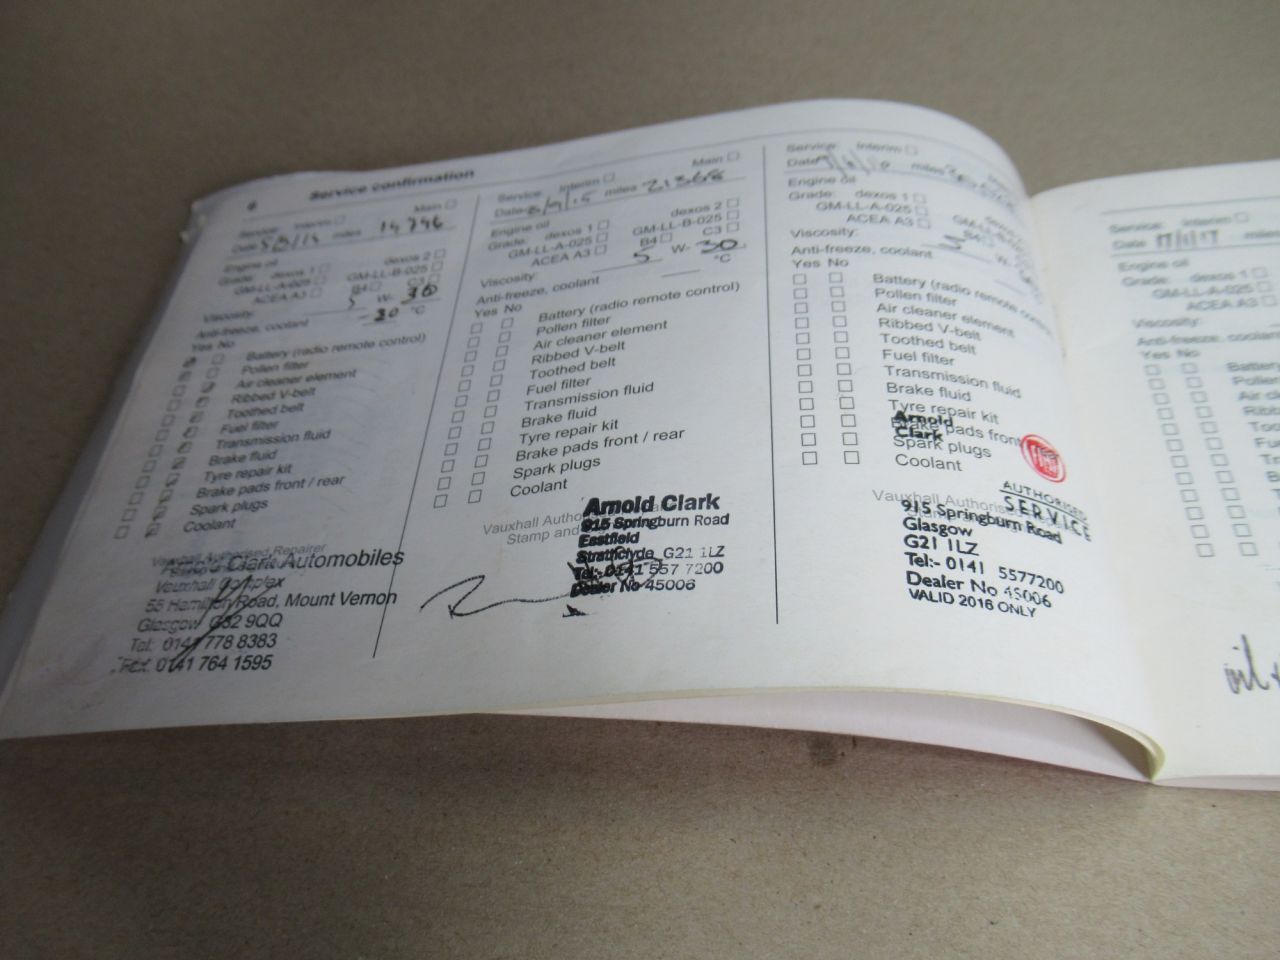 6 Service confirmation
Service: Interim Main
Date miles 14
Engine oil
Grade: dexos 1 dexos 2
GM-LL-A-025 GM-LL-B-025
ACEA A3 B4 C3
Viscosity: 5 W- 30
Anti-freeze, coolant -30 °C
Yes No
Battery (radio remote control)
Pollen filter
Air cleaner element
Ribbed V-belt
Toothed belt
Fuel filter
Transmission fluid
Brake fluid
Tyre repair kit
Brake pads front / rear
Spark plugs
Coolant
Vauxhall Authorised Repairer
Clark Automobiles
Vauxhall Complex
55 Hamilton Road, Mount Vernon
Glasgow G32 9QQ
Tel: 0141 778 8383
Fax: 0141 764 1595
Service: Interim Main
Date miles 21368
Engine oil
Grade: dexos 1 dexos 2
GM-LL-A-025 GM-LL-B-025
ACEA A3 B4 C3
Viscosity: 5 W- 30
Anti-freeze, coolant °C
Yes No
Battery (radio remote control)
Pollen filter
Air cleaner element
Ribbed V-belt
Toothed belt
Fuel filter
Transmission fluid
Brake fluid
Tyre repair kit
Brake pads front / rear
Spark plugs
Coolant
Vauxhall
Stamp and
Arnold Clark
915 Springburn Road
Eastfield
Strathclyde G21 1LZ
Tel:- 0141 557 7200
Dealer No 45006
Service: Interim
Date miles
Engine oil
Grade: dexos 1
GM-LL-A-025
ACEA A3 B4
Viscosity: 5 W-
Anti-freeze, coolant
Yes No
Battery (radio remote
Pollen filter
Air cleaner element
Ribbed V-belt
Toothed belt
Fuel filter
Transmission fluid
Brake fluid
Tyre repair kit
Brake pads front
Spark plugs
Coolant
Arnold
Clark
AUTHORISED
SERVICE
Vauxhall Authorised
915 Springburn Road
Glasgow
G21 1LZ
Tel:- 0141 5577200
Dealer No 45006
VALID 2016 ONLY
Service: Interim
Date
Engine oil
Grade: dexos 1
GM-LL-A-025
ACEA A3
Viscosity:
Anti-freeze, coolant
Yes No